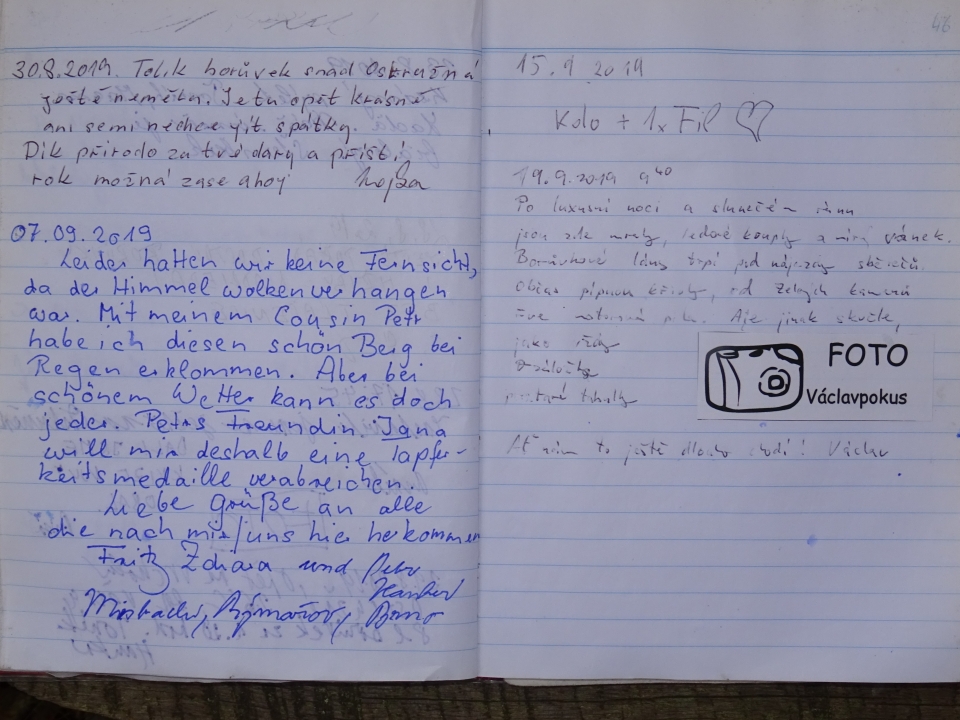 30.8.2019. Tolik borůvek snad Ostružná
ještě neměla. Je tu opět krásně
ani se mi nechce jít spátky.
Dík přírodo za tvé dary a příští
rok možná zase ahoj
07.09.2019
Leider hatten wir keine Fernsicht,
da der Himmel wolkenverhangen
war. Mit meinem Cousin Petr
habe ich diesen schön Berg bei
Regen erklommen. Aber bei
schönem Wetter kann es doch
jeder. Petrs Freundin Jana
will mir deshalb eine Tapfer-
keitsmedaille verabreichen.
Liebe Grüße an alle
die nach mir/uns hier herkommen
Fritz und Petr
Rýmařov, Brno
46
15.9 2019
Kolo + 1x Fil
19.9.2019 9⁴⁰
Po luxusní noci a slunečném ránu
jsou zde mraky, ledové kroupy a vánek.
Borůvkové lány trpí pod sběračů.
Občas, od
Aje jinak skvěle,
jako vždy
FOTO
Václavpokus
Ať nám to ještě dlouho chodí! Václav